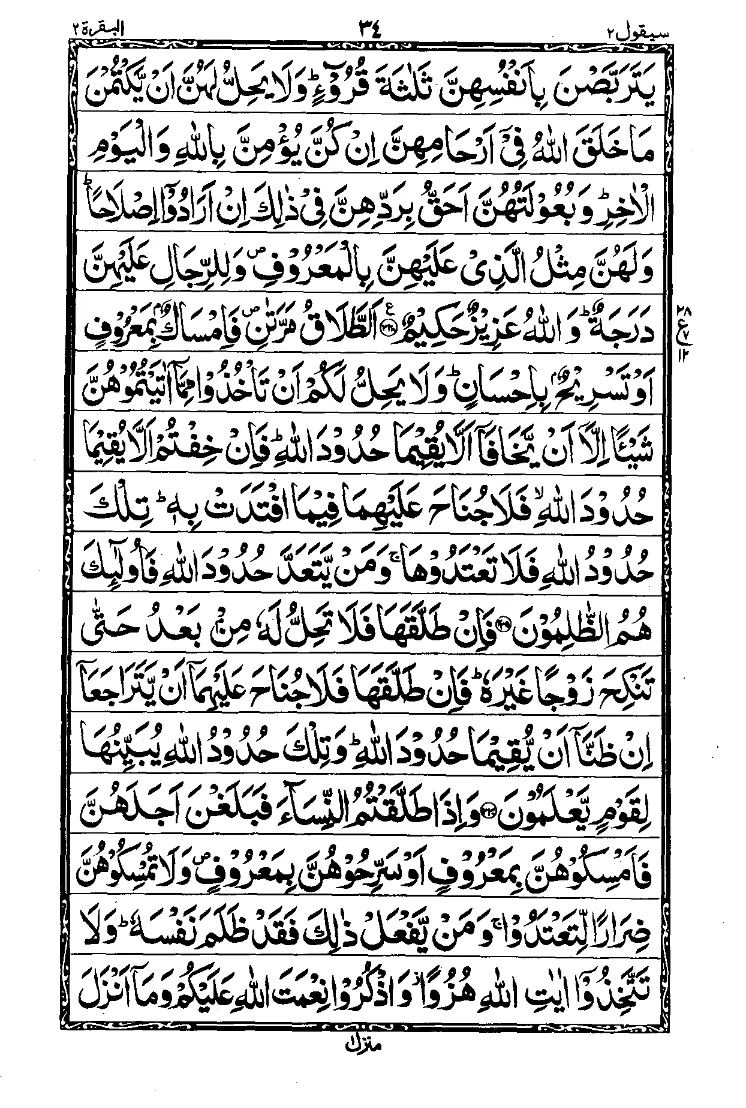 سيقول ٢ ٣٤ البقرة ٢
يَتَرَبَّصْنَ بِاَنْفُسِهِنَّ ثَلٰثَةَ قُرُوْٓءٍ ؕ وَلَا يَحِلُّ لَهُنَّ اَنْ يَّكْتُمْنَ
مَا خَلَقَ اللّٰهُ فِىْٓ اَرْحَامِهِنَّ اِنْ كُنَّ يُؤْمِنَّ بِاللّٰهِ وَالْيَوْمِ
الْاٰخِرِ ؕ وَبُعُوْلَتُهُنَّ اَحَقُّ بِرَدِّهِنَّ فِىْ ذٰلِكَ اِنْ اَرَادُوْٓا اِصْلَاحًا ؕ
وَلَهُنَّ مِثْلُ الَّذِىْ عَلَيْهِنَّ بِالْمَعْرُوْفِ ۪ وَلِلرِّجَالِ عَلَيْهِنَّ
دَرَجَةٌ ؕ وَاللّٰهُ عَزِيْزٌ حَكِيْمٌ ﴿۲۲۸﴾ اَلطَّلَاقُ مَرَّتٰنِ ۪ فَاِمْسَاكٌۢ بِمَعْرُوْفٍ
اَوْ تَسْرِيْحٌۢ بِاِحْسَانٍ ؕ وَلَا يَحِلُّ لَكُمْ اَنْ تَاْخُذُوْا مِمَّآ اٰتَيْتُمُوْهُنَّ
شَيْـًٔا اِلَّآ اَنْ يَّخَافَآ اَلَّا يُقِيْمَا حُدُوْدَ اللّٰهِ ؕ فَاِنْ خِفْتُمْ اَلَّا يُقِيْمَا
حُدُوْدَ اللّٰهِ ۙ فَلَا جُنَاحَ عَلَيْهِمَا فِيْمَا افْتَدَتْ بِهٖ ؕ تِلْكَ
حُدُوْدُ اللّٰهِ فَلَا تَعْتَدُوْهَا ۚ وَمَنْ يَّتَعَدَّ حُدُوْدَ اللّٰهِ فَاُولٰٓئِكَ
هُمُ الظّٰلِمُوْنَ ﴿۲۲۹﴾ فَاِنْ طَلَّقَهَا فَلَا تَحِلُّ لَهٗ مِنْۢ بَعْدُ حَتّٰى
تَنْكِحَ زَوْجًا غَيْرَهٗ ؕ فَاِنْ طَلَّقَهَا فَلَا جُنَاحَ عَلَيْهِمَآ اَنْ يَّتَرَاجَعَآ
اِنْ ظَنَّآ اَنْ يُّقِيْمَا حُدُوْدَ اللّٰهِ ؕ وَتِلْكَ حُدُوْدُ اللّٰهِ يُبَيِّنُهَا
لِقَوْمٍ يَّعْلَمُوْنَ ﴿۲۳۰﴾ وَاِذَا طَلَّقْتُمُ النِّسَآءَ فَبَلَغْنَ اَجَلَهُنَّ
فَاَمْسِكُوْهُنَّ بِمَعْرُوْفٍ اَوْ سَرِّحُوْهُنَّ بِمَعْرُوْفٍ ۪ وَلَا تُمْسِكُوْهُنَّ
ضِرَارًا لِّتَعْتَدُوْا ۚ وَمَنْ يَّفْعَلْ ذٰلِكَ فَقَدْ ظَلَمَ نَفْسَهٗ ؕ وَلَا
تَتَّخِذُوْٓا اٰيٰتِ اللّٰهِ هُزُوًا ؗ وَّاذْكُرُوْا نِعْمَتَ اللّٰهِ عَلَيْكُمْ وَمَآ اَنْزَلَ
٢٨
ع
١٢
منزل ١